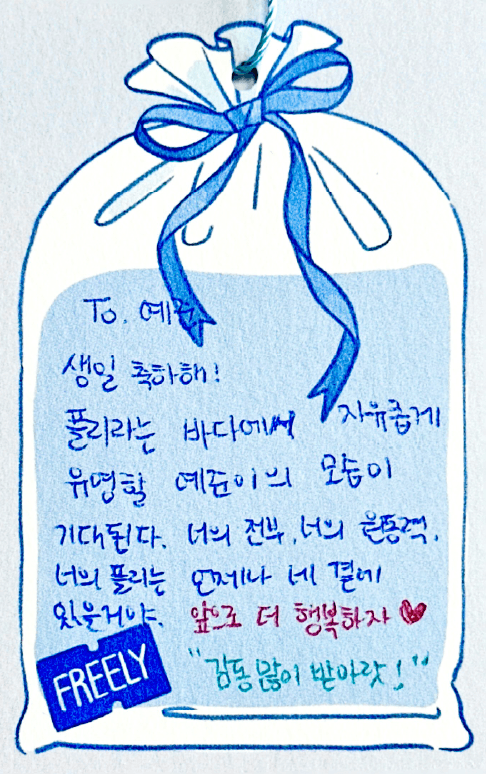 To. 예준
생일 축하해!
플리라는 바다에서 자유롭게
유영할 예준이의 모습이
기대된다. 너의 전부, 너의 원동력,
너의 플리는 언제나 네 곁에
있을거야. 앞으로 더 행복하자 ♥
"감동 많이 받아랏!"
FREELY